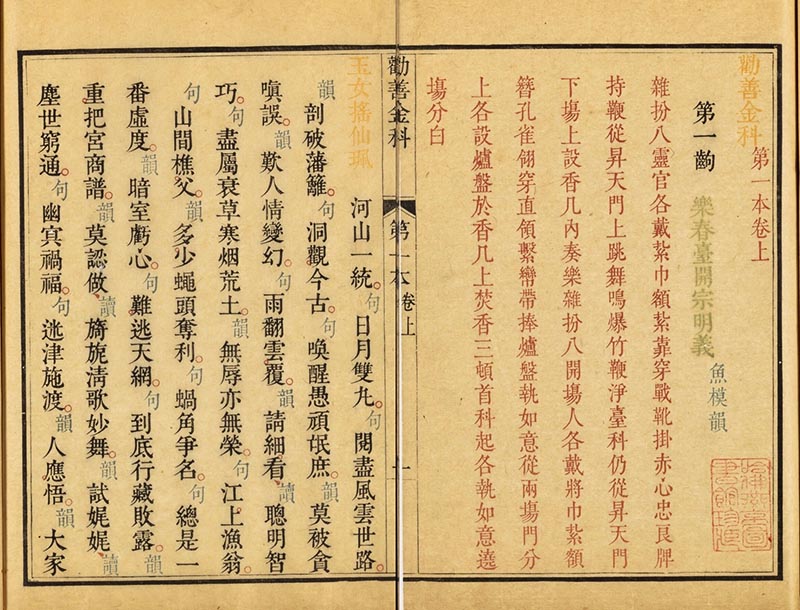 勸善金科 第一本卷上
第一齣 樂春臺開宗明義 魚模韻
雜扮八靈官各戴紮巾額紮靠穿戰靴掛赤心忠良牌
持鞭從昇天門上跳舞鳴爆竹鞭淨臺科仍從昇天門
下塲上設香几內奏樂雜扮八開塲人各戴將巾紮額
簪孔雀翎穿直領繫鸞帶捧爐盤執如意從兩塲門分
上各設爐盤於香几上焚香三頓首科起各執如意遶
塲分白
勸善金科 第一本卷上 一
玉女搖仙珮 河山一統。句日月雙丸。句閱盡風雲世路。
韻剖破藩籬。句洞觀今古。句喚醒愚頑氓庶。韻莫被貪
嗔誤。韻歎人情變幻。句雨翻雲覆。韻請細看讀聰明智
巧。句盡屬衰草寒烟荒土。韻無辱亦無榮。句江上漁翁。
句山間樵父。韻多少蠅頭奪利。句蝸角爭名。句總是一
番虛度。韻暗室虧心。句難逃天網。句到底行藏敗露。韻
重把宮商譜。韻莫認做讀旖旎淸歌妙舞。韻試娓娓讀
塵世窮通。句幽㝠禍福。句迷津施渡。韻人應悟。韻大家